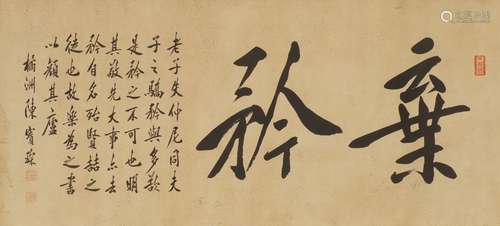 棄矜
老子矢仲尼曰夫
子之驕矜與多欲
是矜之不可也明
其敬先大事亦去
矜自名殆賢喆之
徒也故樂為之書
以顏其廬
橘洲陳寶琛